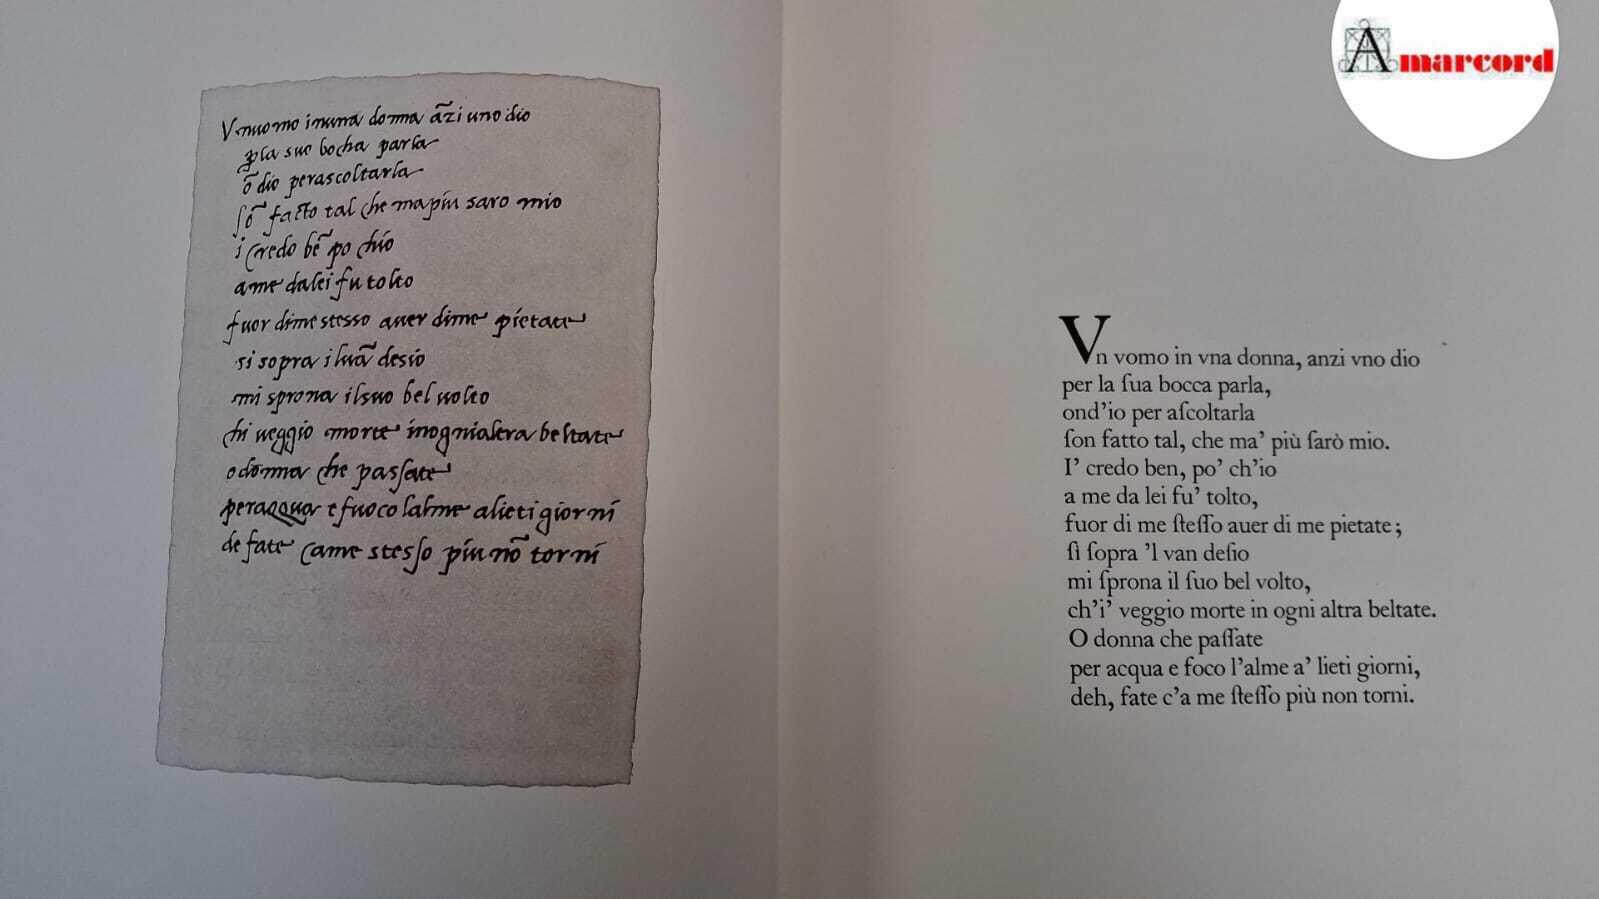 Vnuomo inuna donna āzi uno dio
ꝑla suo bocha parla
ō dio perascoltarla
sō facto tal che mapiu saro mio
i credo bē po chio
ame dalei fu tolto
fuor dime stesso auer dime pietate
si sopra iluā desio
mi sprona ilsuo bel uolto
chi ueggio morte inognialtra beltate
o donna che passate
peracqua e fuoco lalme alieti giorni
de fate came stesso piu nō torni
Vn vomo in vna donna, anzi vno dio
per la ſua bocca parla,
ond'io per aſcoltarla
ſon fatto tal, che ma' più ſarò mio.
I' credo ben, po' ch'io
a me da lei fu' tolto,
fuor di me ſteſſo auer di me pietate;
ſì ſopra 'l van deſio
mi ſprona il ſuo bel volto,
ch'i' veggio morte in ogni altra beltate.
O donna che paſſate
per acqua e foco l'alme a' lieti giorni,
deh, fate c'a me ſteſſo più non torni.
Amarcord